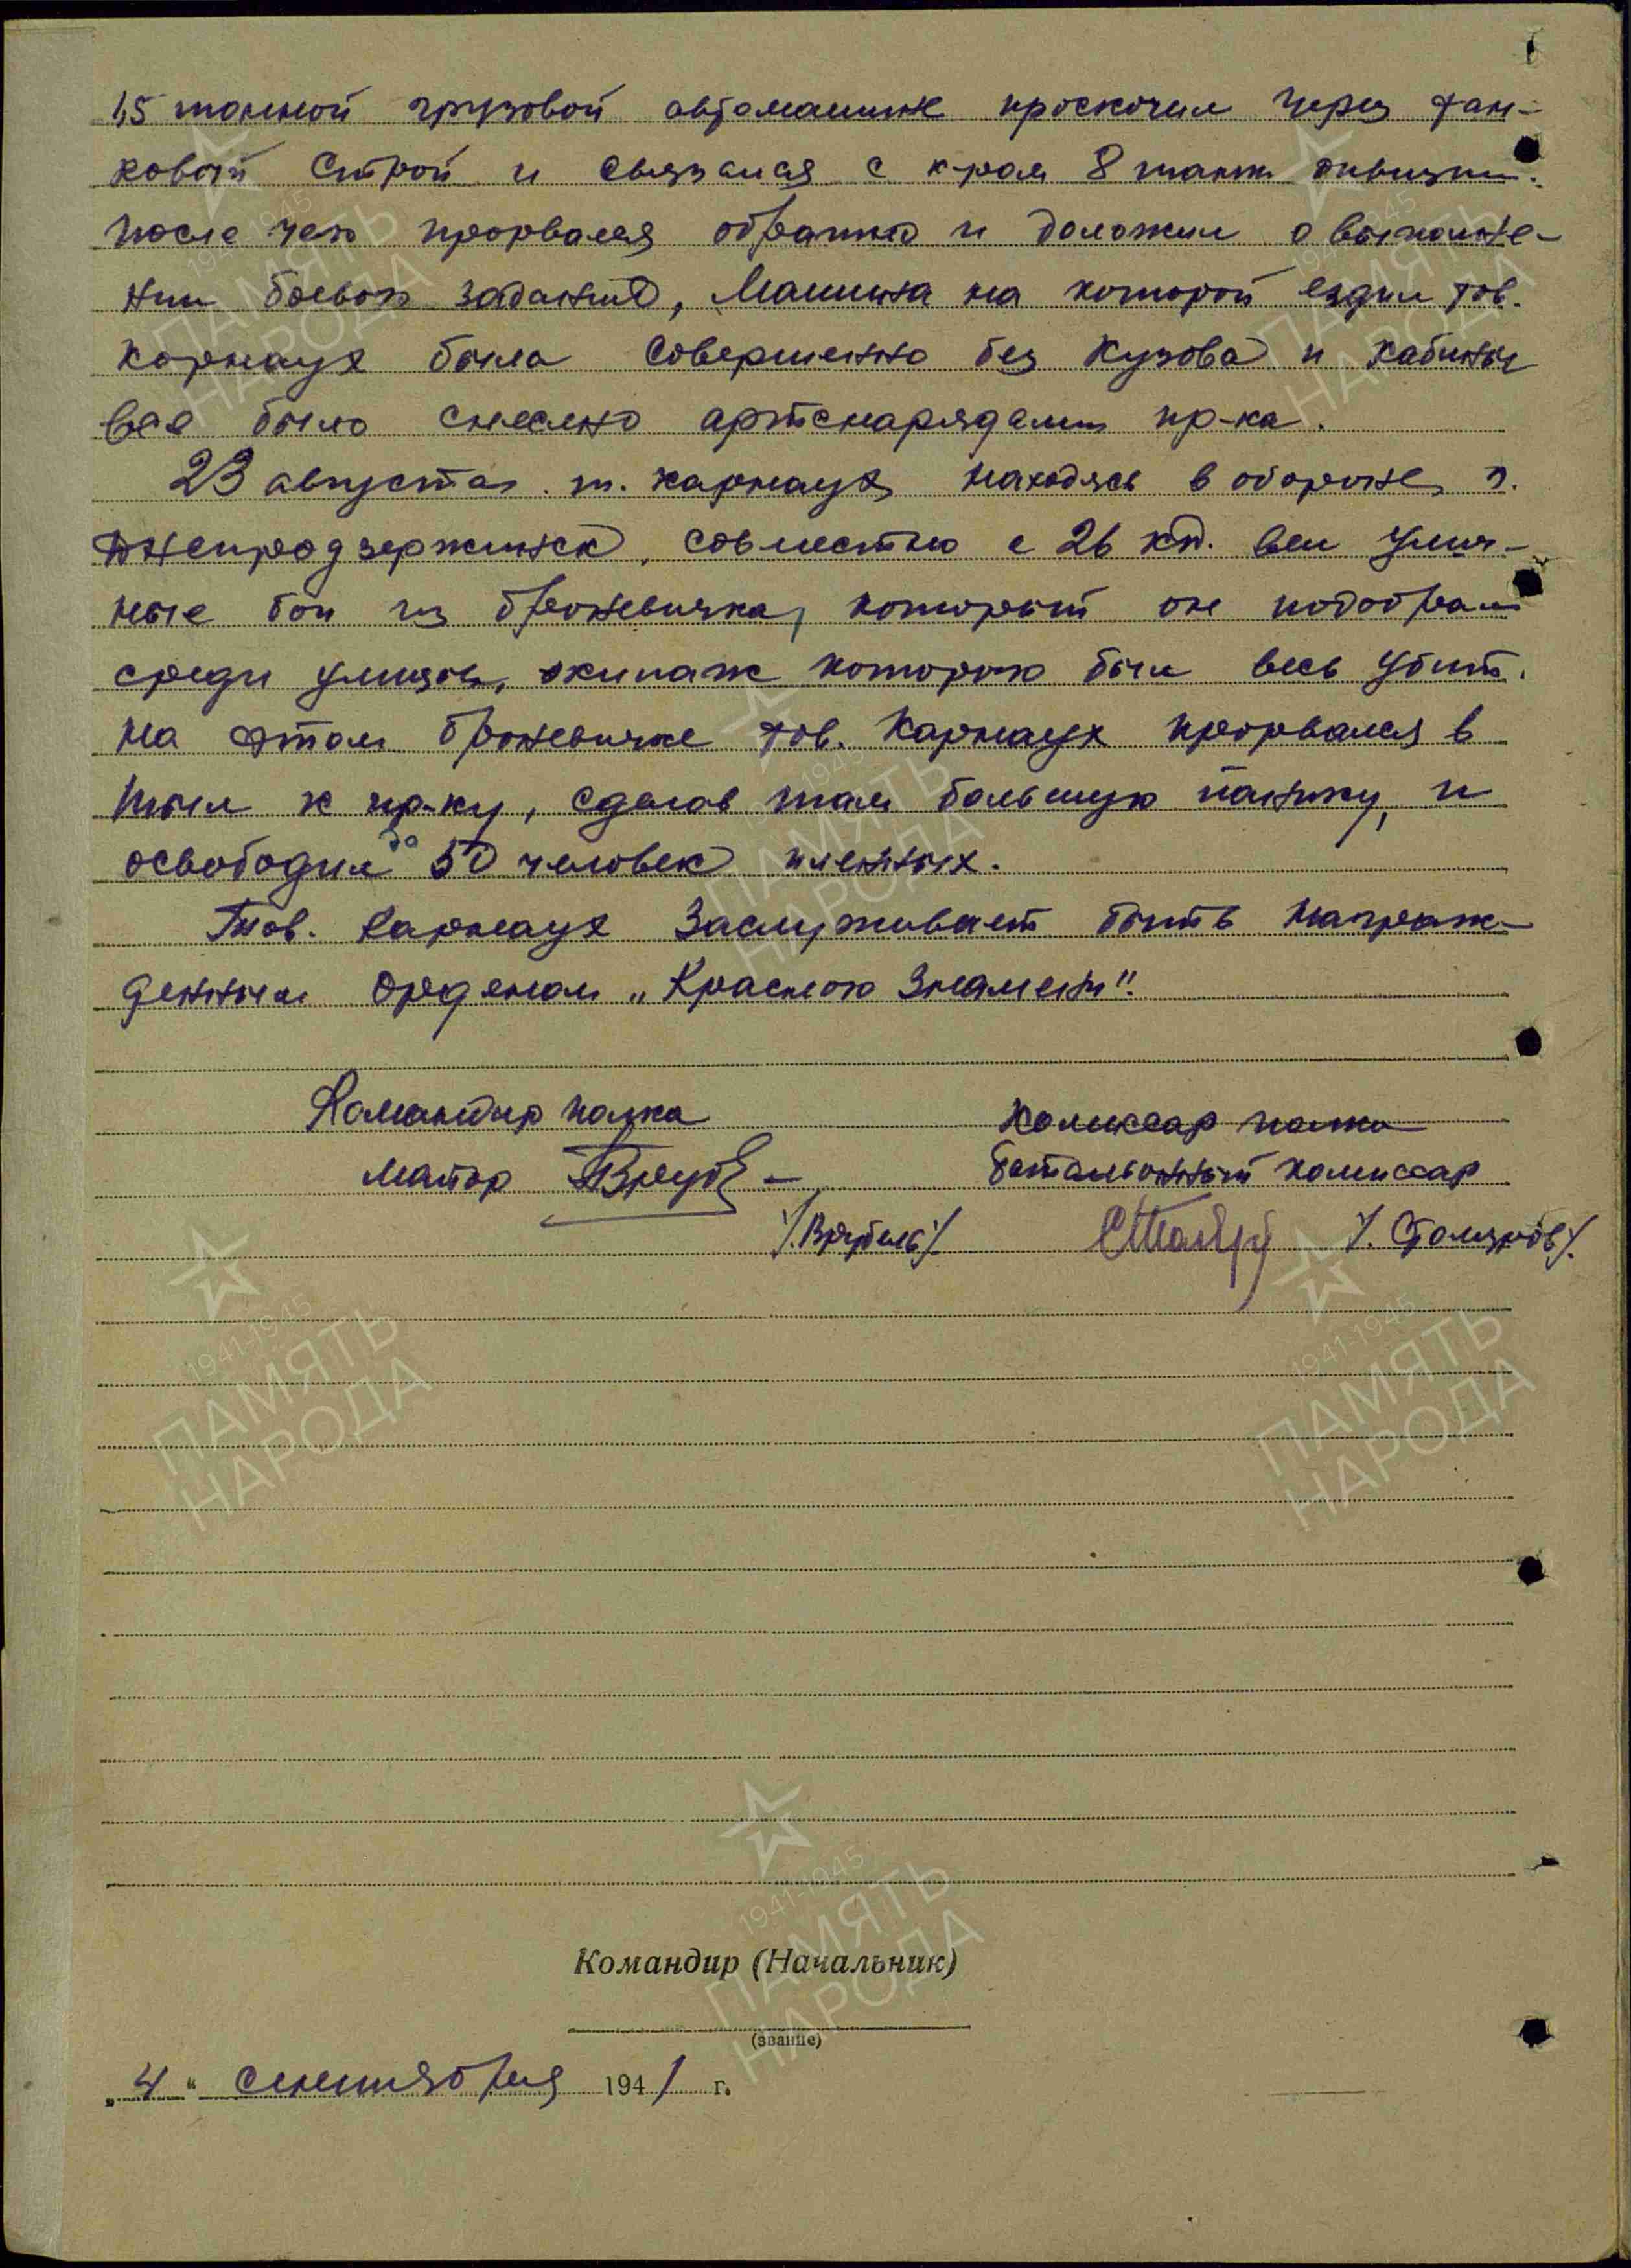 1,5 тонной грузовой автомашине проскочил через тан-
ковый строй и связался с к-ром 8 танк. дивизии.
после чего прорвался обратно и доложил о выполне-
нии боевого задания, Машина на которой ездил тов.
Карнаух была совершенно без кузова и кабины
все было снесено артснарядами пр-ка.
23 августа т. Карнаух находясь в обороне г.
Днепродзержинск, совместно с 26 кп. вел улич-
ные бои из броневичка, который он подобрал
среди улицы, экипаж которого был весь убит.
На этом броневичке тов. Карнаух прорвался в
тыл к пр-ку, сделав там большую панику, и
освободил до 50 человек пленных.
Тов. Карнаух заслуживает быть награж-
денным орденом „Красного Знамени".
Командир полка
Комиссар полка
майор
батальонный комиссар
/.Врубель/.
/. Столяров/.
Командир (Начальник)
(звание)
„4" сентября 1941 г.
1941-1945
ПАМЯТЬ
НАРОДА